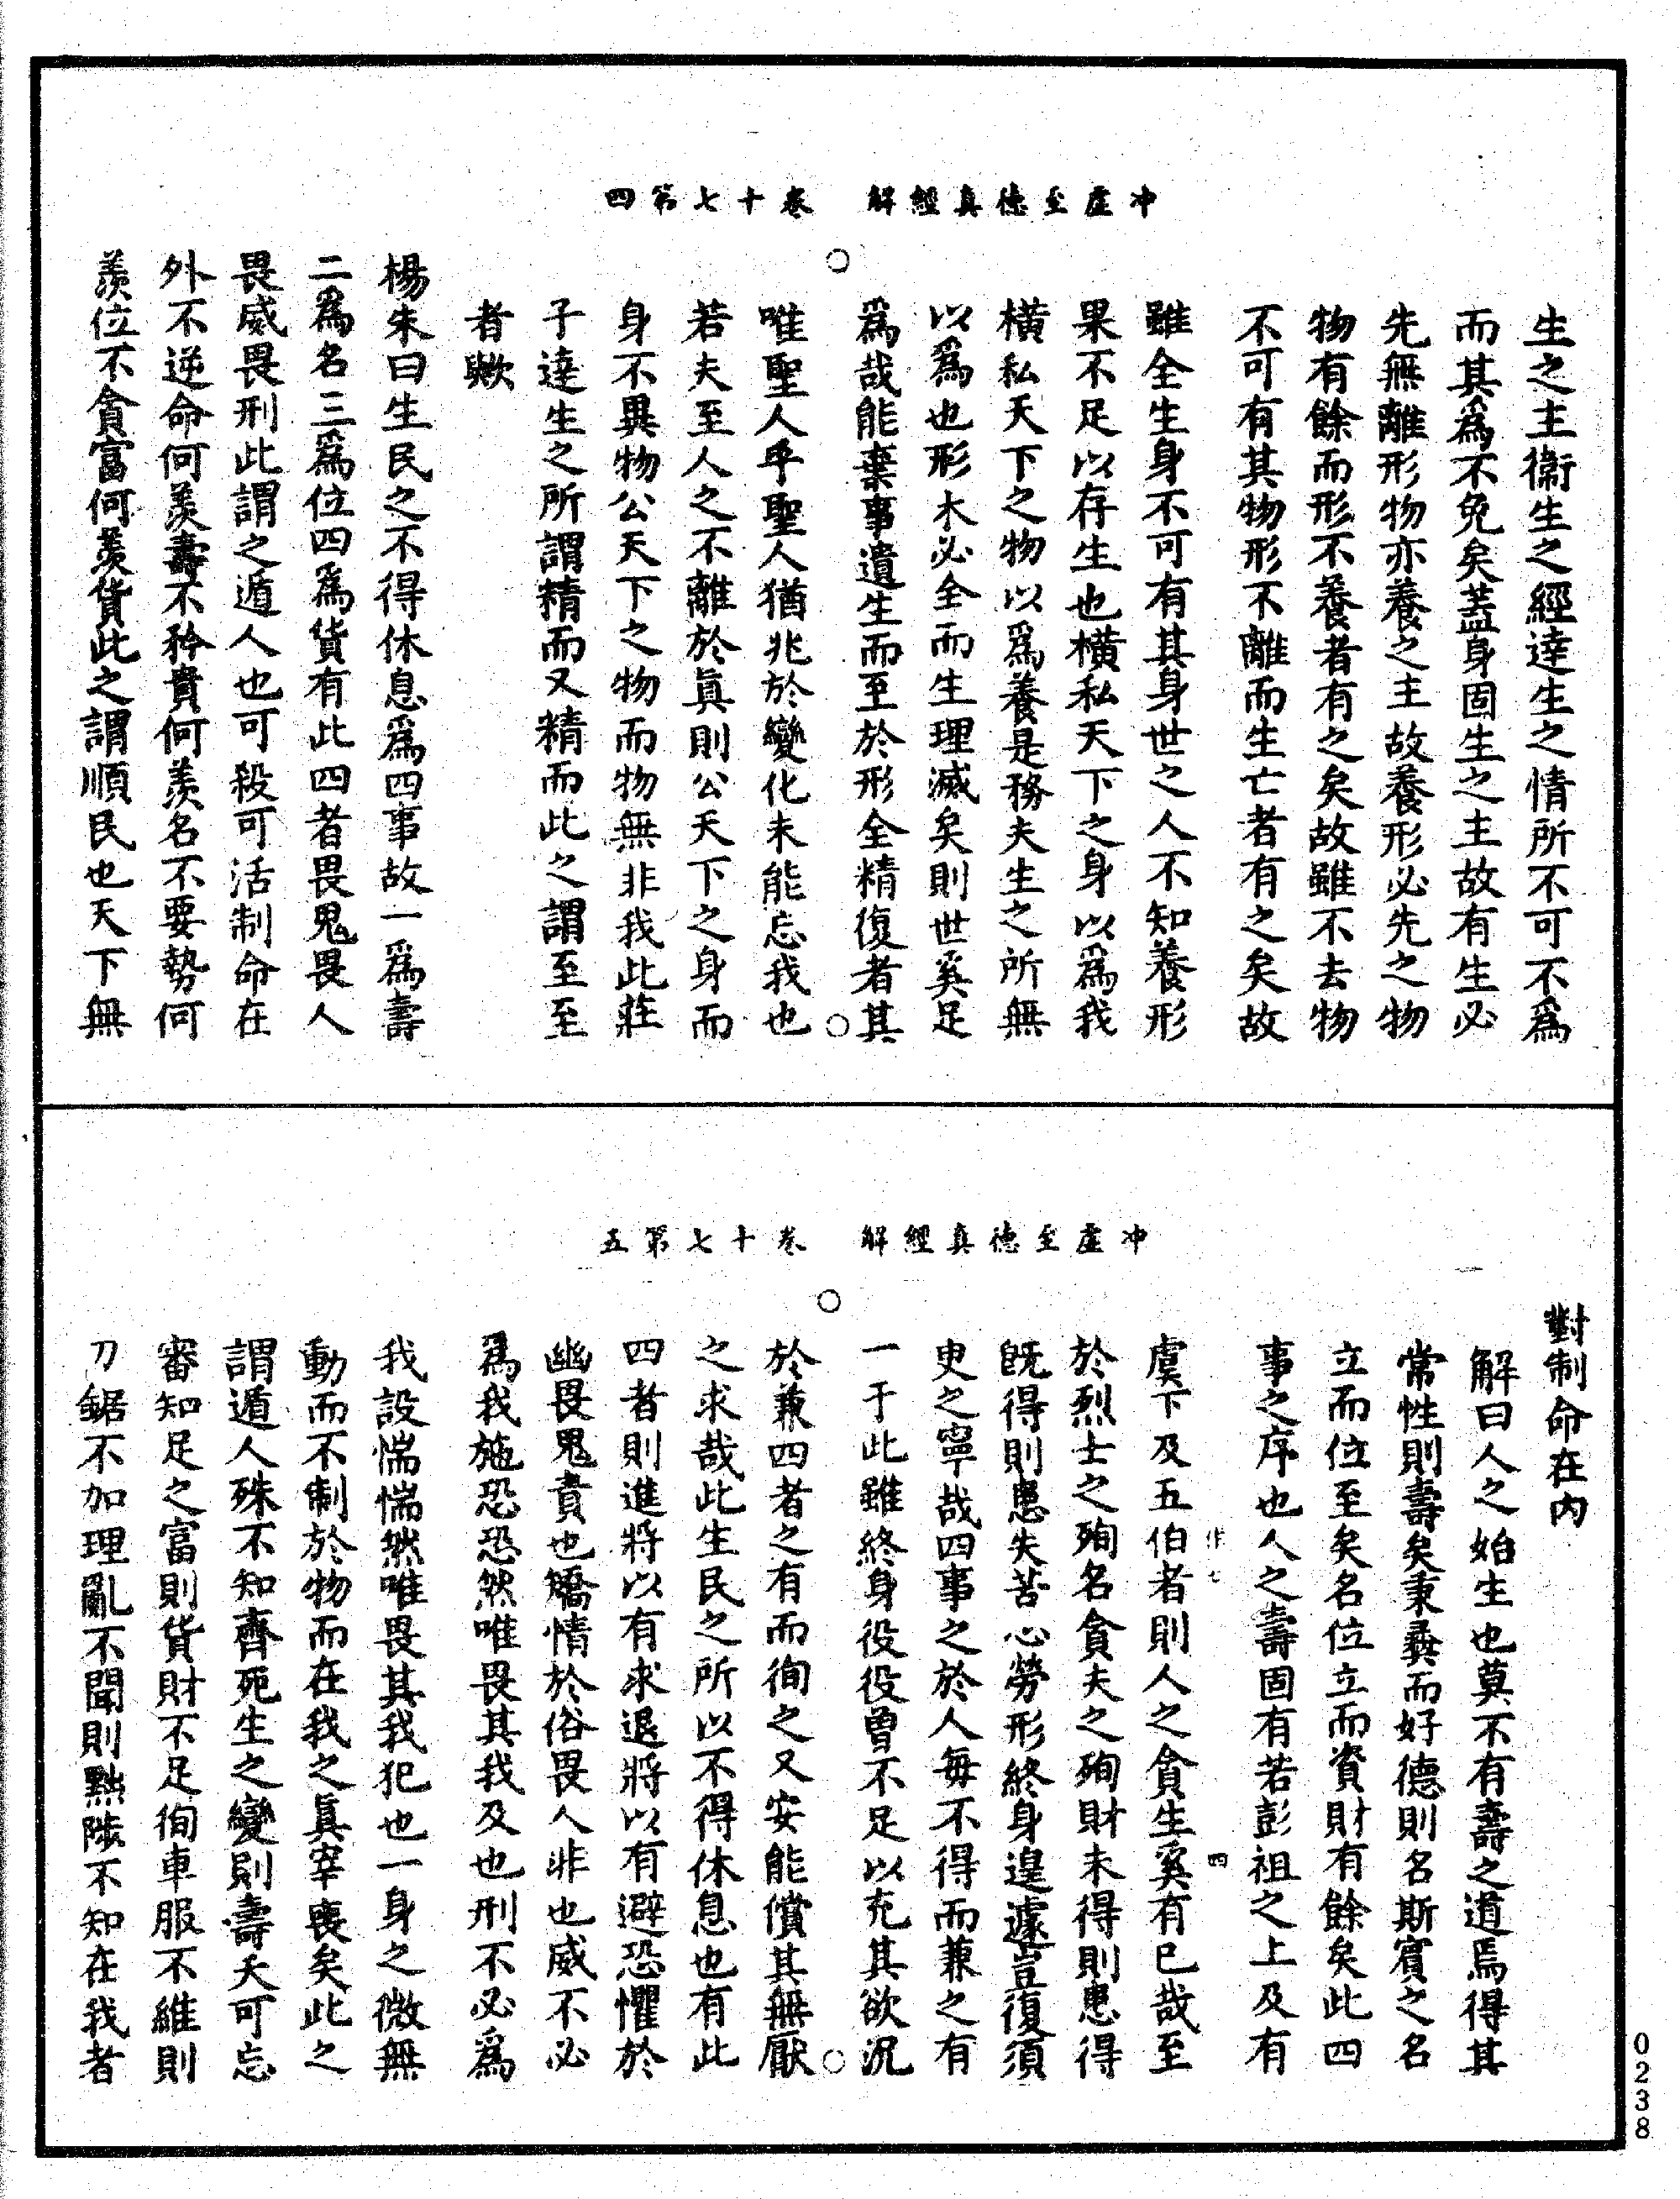 冲虛至德真經解　卷十七第四
生之主衞生之經達生之情所不可不爲
而其爲不免矣蓋身固生之主故有生必
先無離形物亦養之主故養形必先之物
物有餘而形不養者有之矣故雖不去物
不可有其物形不離而生亡者有之矣故
雖全生身不可有其身世之人不知養形
果不足以存生也橫私天下之身以爲我
橫私天下之物以爲養是務夫生之所無
以爲也形木必全而生理滅矣則世奚足
爲哉能棄事遺生而至於形全精復者其
唯聖人乎聖人猶兆於變化未能忘我也
若夫至人之不離於眞則公天下之身而
身不異物公天下之物而物無非我此莊
子達生之所謂精而又精而此之謂至至
者歟
楊朱曰生民之不得休息爲四事故一爲壽
二爲名三爲位四爲貨有此四者畏鬼畏人
畏威畏刑此謂之遁人也可殺可活制命在
外不逆命何羨壽不矜貴何羨名不要勢何
羨位不貪富何羨貨此之謂順民也天下無
冲虛至德真經解　卷十七第五
對制命在內
解曰人之始生也莫不有壽之道焉得其
常性則壽矣秉彝而好德則名斯賓之名
立而位至矣名位立而資財有餘矣此四
事之序也人之壽固有若彭祖之上及有
虞下及五伯者則人之貪生奚有已哉至
於烈士之殉名貪夫之殉財未得則患得
既得則患失苦心勞形終身遑遽豈復須
史之寧哉四事之於人每不得而兼之有
一于此雖終身役役曾不足以充其欲況
於兼四者之有而徇之又安能償其無厭
之求哉此生民之所以不得休息也有此
四者則進將以有求退將以有避恐懼於
幽畏鬼責也矯情於俗畏人非也威不必
爲我施恐恐然唯畏其我及也刑不必爲
我設惴惴然唯畏其我犯也一身之微無
動而不制於物而在我之眞宰喪矣此之
謂遁人殊不知齊死生之變則壽夭可忘
審知足之富則貨財不足徇車服不維則
刀鋸不加理亂不聞則黜陟不知在我者
四
0238